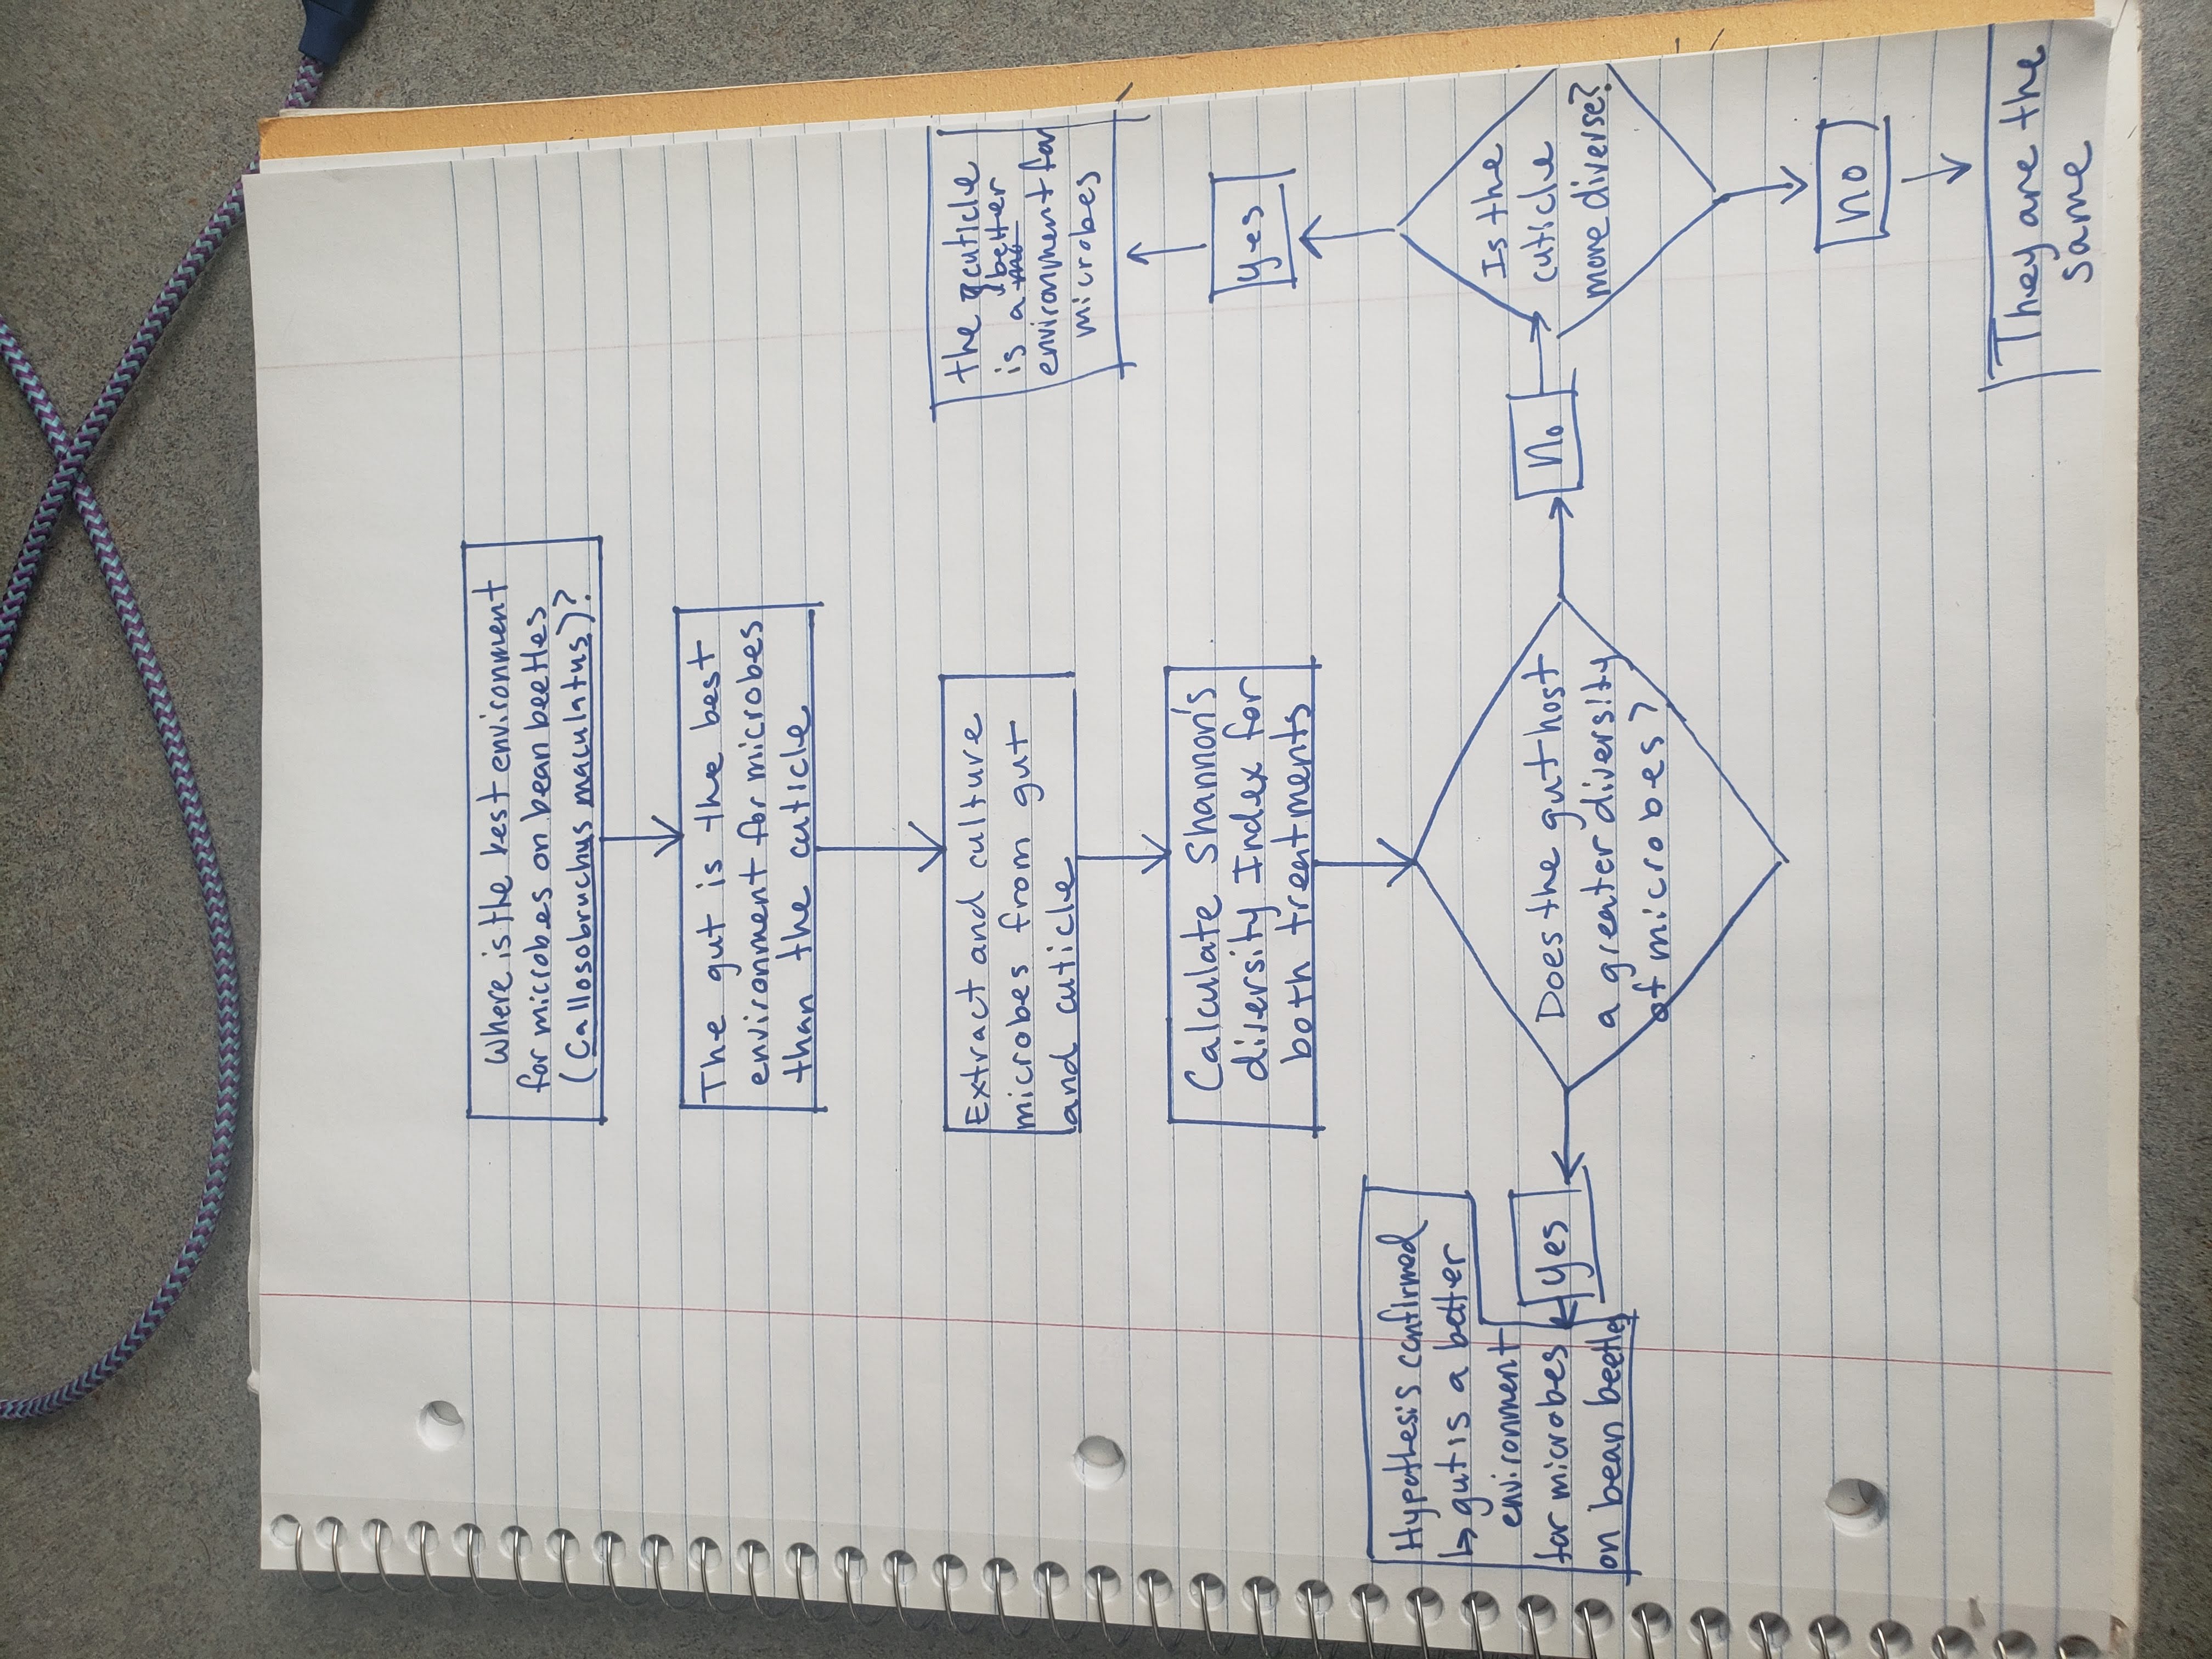 Where is the best environment
for microbes on bean beetles
(Callosobruchus maculatus)?
The gut is the best
environment for microbes
than the cuticle
Extract and culture
microbes from gut
and cuticle
Calculate Shannon's
diversity Index for
both treatments
Does the gut host
a greater diversity
of microbes?
yes
Hypothesis confirmed
↳ gut is a better
environment
for microbes
on bean beetles
no
Is the
cuticle
more diverse?
yes
the cuticle
is a better
environment for
microbes
no
They are the
same